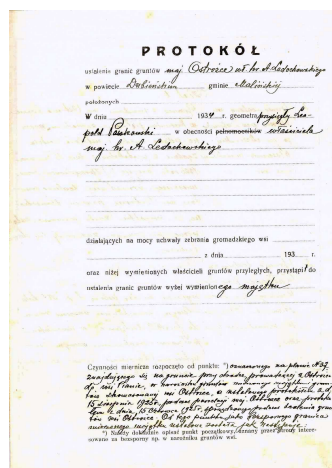 PROTOKÓŁ
ustalenia granic gruntów maj. Ostrożec wł. hr. A. Ledochowskiego
w powiecie Dubieńskim gminie Malińskiej
położonych
W dniu 1934 r. geometra przysięgły Leo-
pold Pankowski w obecności pełnomocników właściciela
maj. hr. A. Ledochowskiego
działających na mocy uchwały zebrania gromadzkiego wsi
z dnia 193 r.
oraz niżej wymienionych właścicieli gruntów przyległych, przystąpił do
ustalenia granic gruntów wyżej wymienionego majątku
Czynności miernicze rozpoczęto od punktu: *) oznaczonego na planie № 37
znajdującego się na gruncie przy drodze, prowadzącej z Ostrożca
do wsi w narożniku gruntów
wsi Ostrożec, a ustalonego protokółem z d.
15 sierpnia 1925 r. podczas pomiaru wsi Ostrożec oraz protokó-
łem z dnia 15 Ostrożec 1925 r. sporządzonego podczas
wsi Ostrożec. Od tego punktu jako bezspornego granica
majątku ustalona została jak następuje:
*) Należy dokładnie opisać punkt początkowy, uznany przez strony intere-
sowane za bezsporny np. w narożniku gruntów wsi.